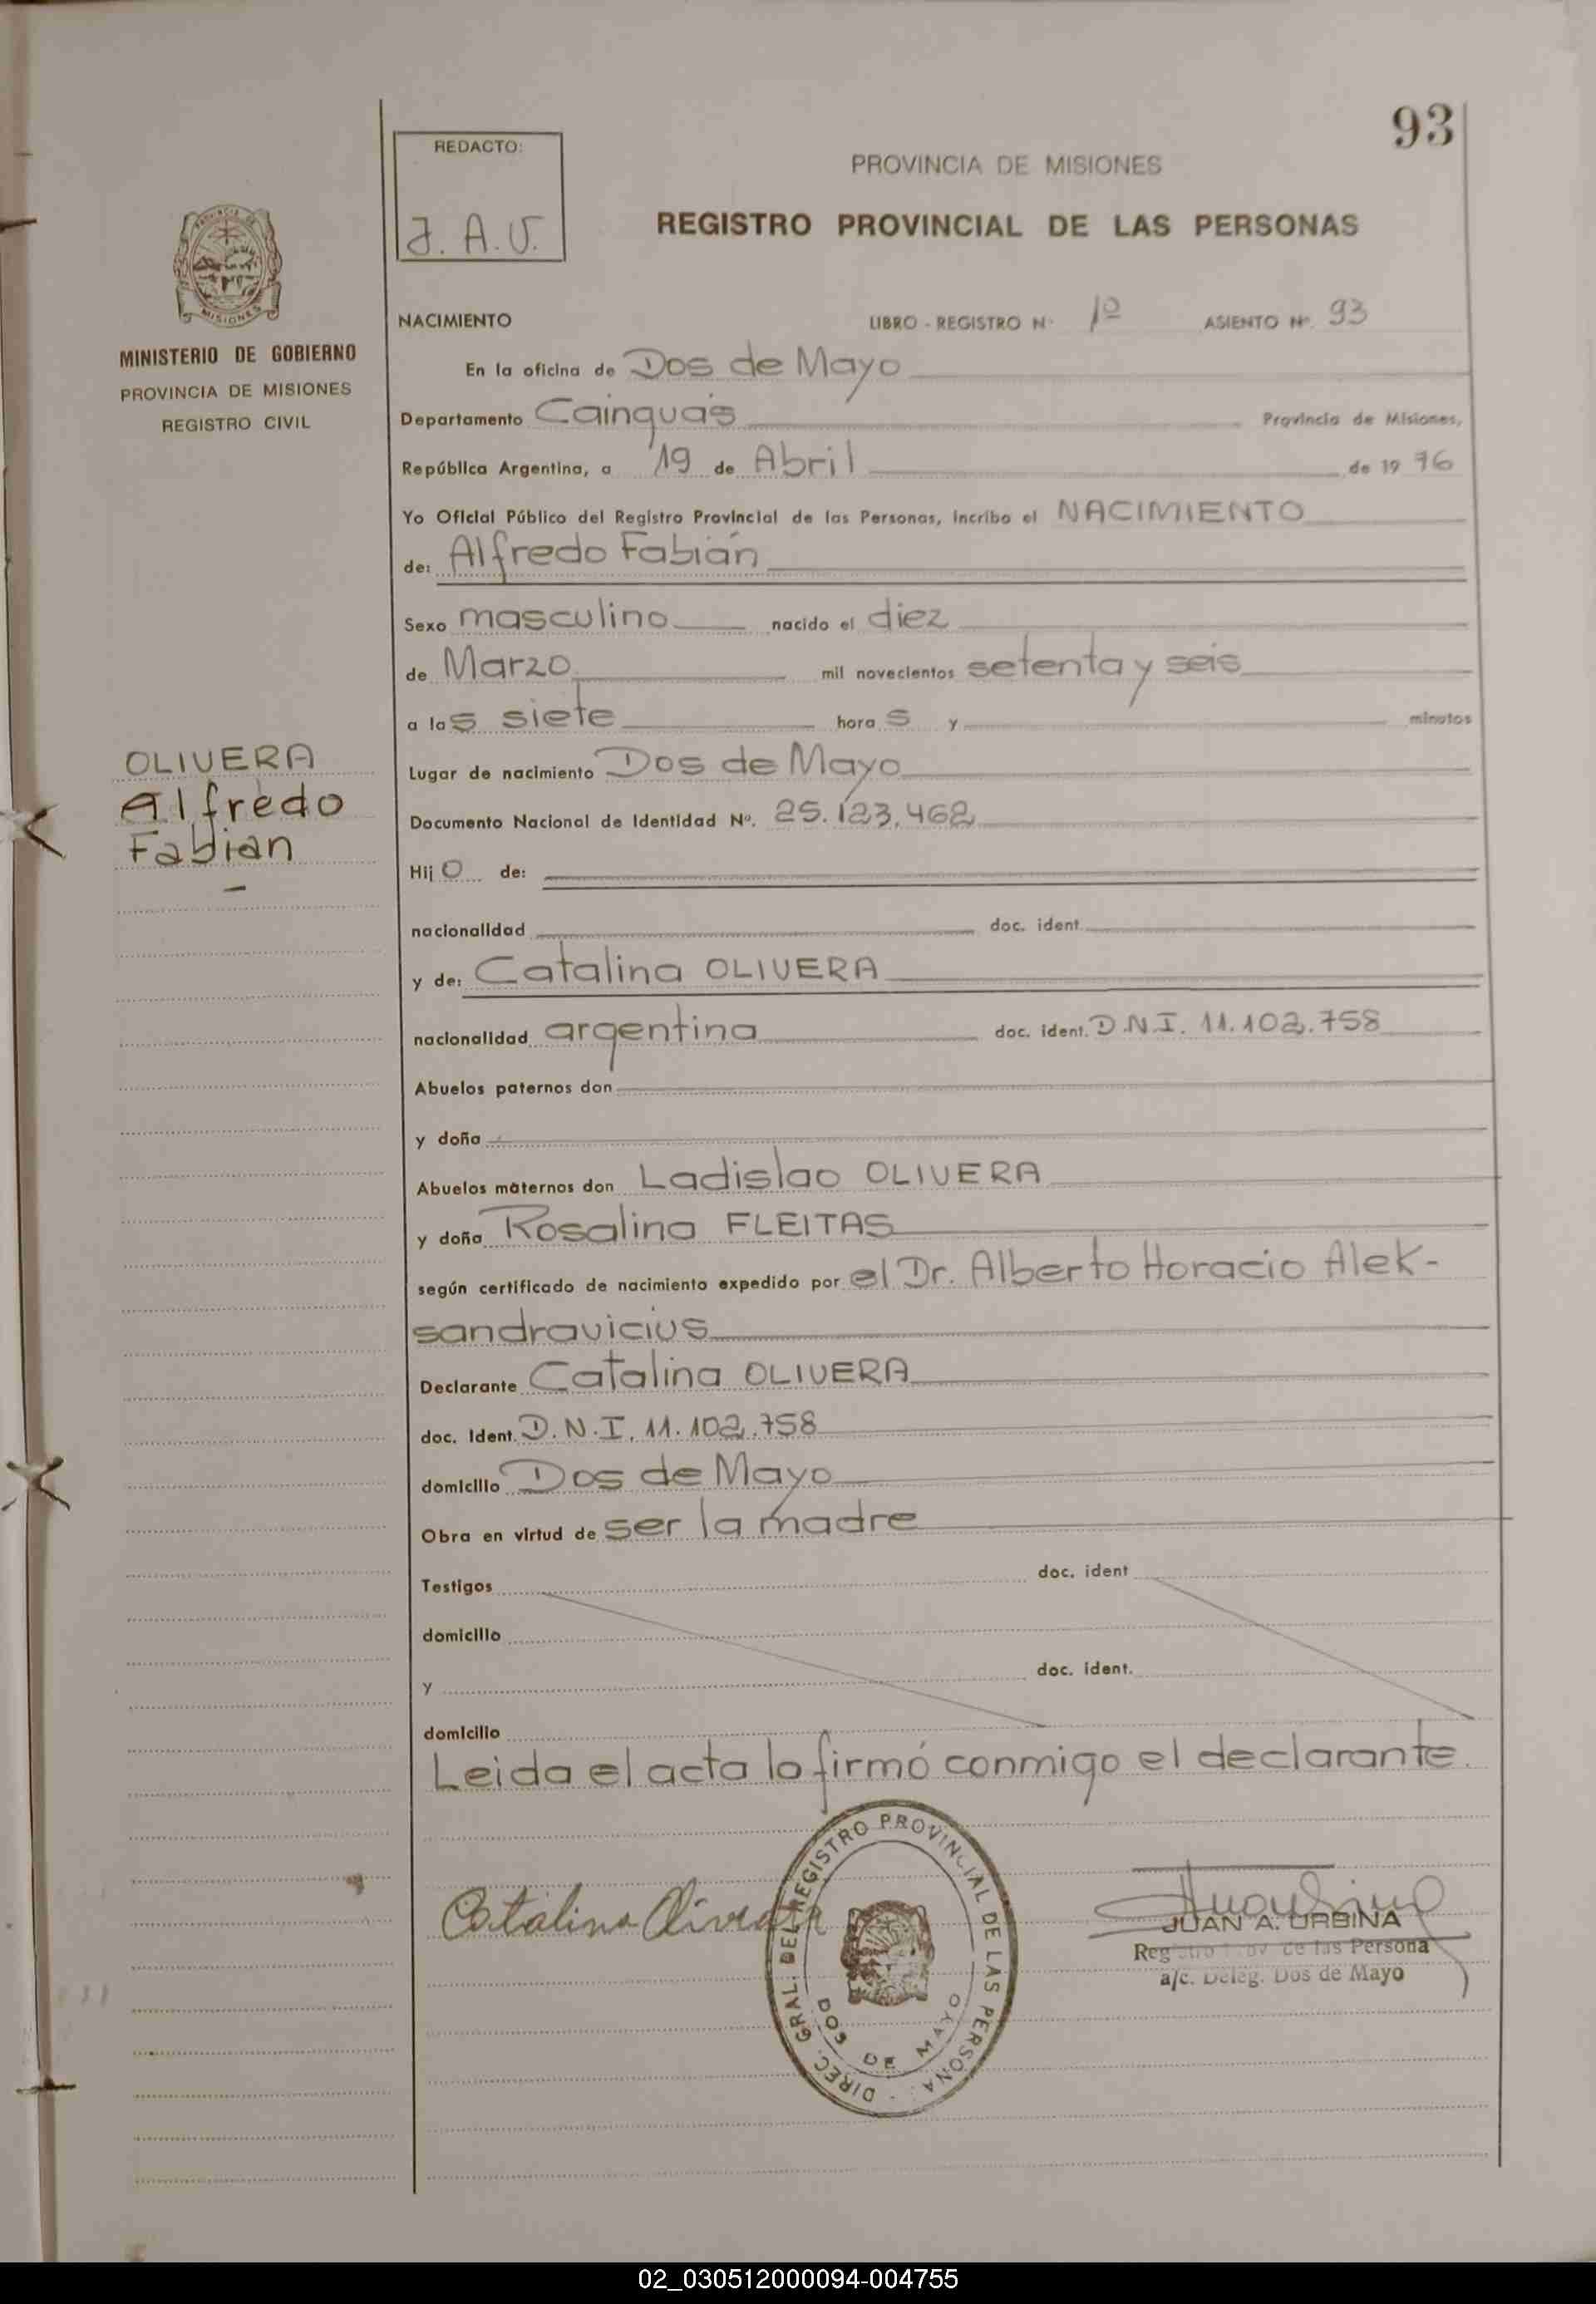 93
REDACTO:
J. A. U.
PROVINCIA DE MISIONES
REGISTRO PROVINCIAL DE LAS PERSONAS
MISIONES
MINISTERIO DE GOBIERNO
PROVINCIA DE MISIONES
REGISTRO CIVIL
NACIMIENTO LIBRO - REGISTRO Nº 1º ASIENTO Nº 93
En la oficina de Dos de Mayo
Departamento Cainguás Provincia de Misiones,
República Argentina, a 19 de Abril de 19 76
Yo Oficial Público del Registro Provincial de las Personas, incribo el NACIMIENTO
de: Alfredo Fabián
Sexo masculino nacido el diez
de Marzo mil novecientos setenta y seis
a las siete hora s y minutos
OLIVERA
Alfredo
Fabian
Lugar de nacimiento Dos de Mayo
Documento Nacional de Identidad Nº. 25.123.462
Hij o de:
nacionalidad doc. ident.
y de: Catalina OLIVERA
nacionalidad argentina doc. ident. D.N.I. 11.102.758
Abuelos paternos don
y doña
Abuelos maternos don Ladislao OLIVERA
y doña Rosalina FLEITAS
según certificado de nacimiento expedido por el Dr. Alberto Horacio Alek-
sandravicius
Declarante Catalina OLIVERA
doc. Ident. D.N.I. 11.102.758
domicilio Dos de Mayo
Obra en virtud de ser la madre
Testigos doc. ident
domicilio
y doc. ident.
domicilio
Leida el acta lo firmó conmigo el declarante.
Catalina Olivera
DIREC. GRAL. DEL REGISTRO PROVINCIAL DE LAS PERSONA
DOS DE MAYO
JUAN A. URBINA
de las Persona
a/c. Deleg. Dos de Mayo
02_030512000094-004755